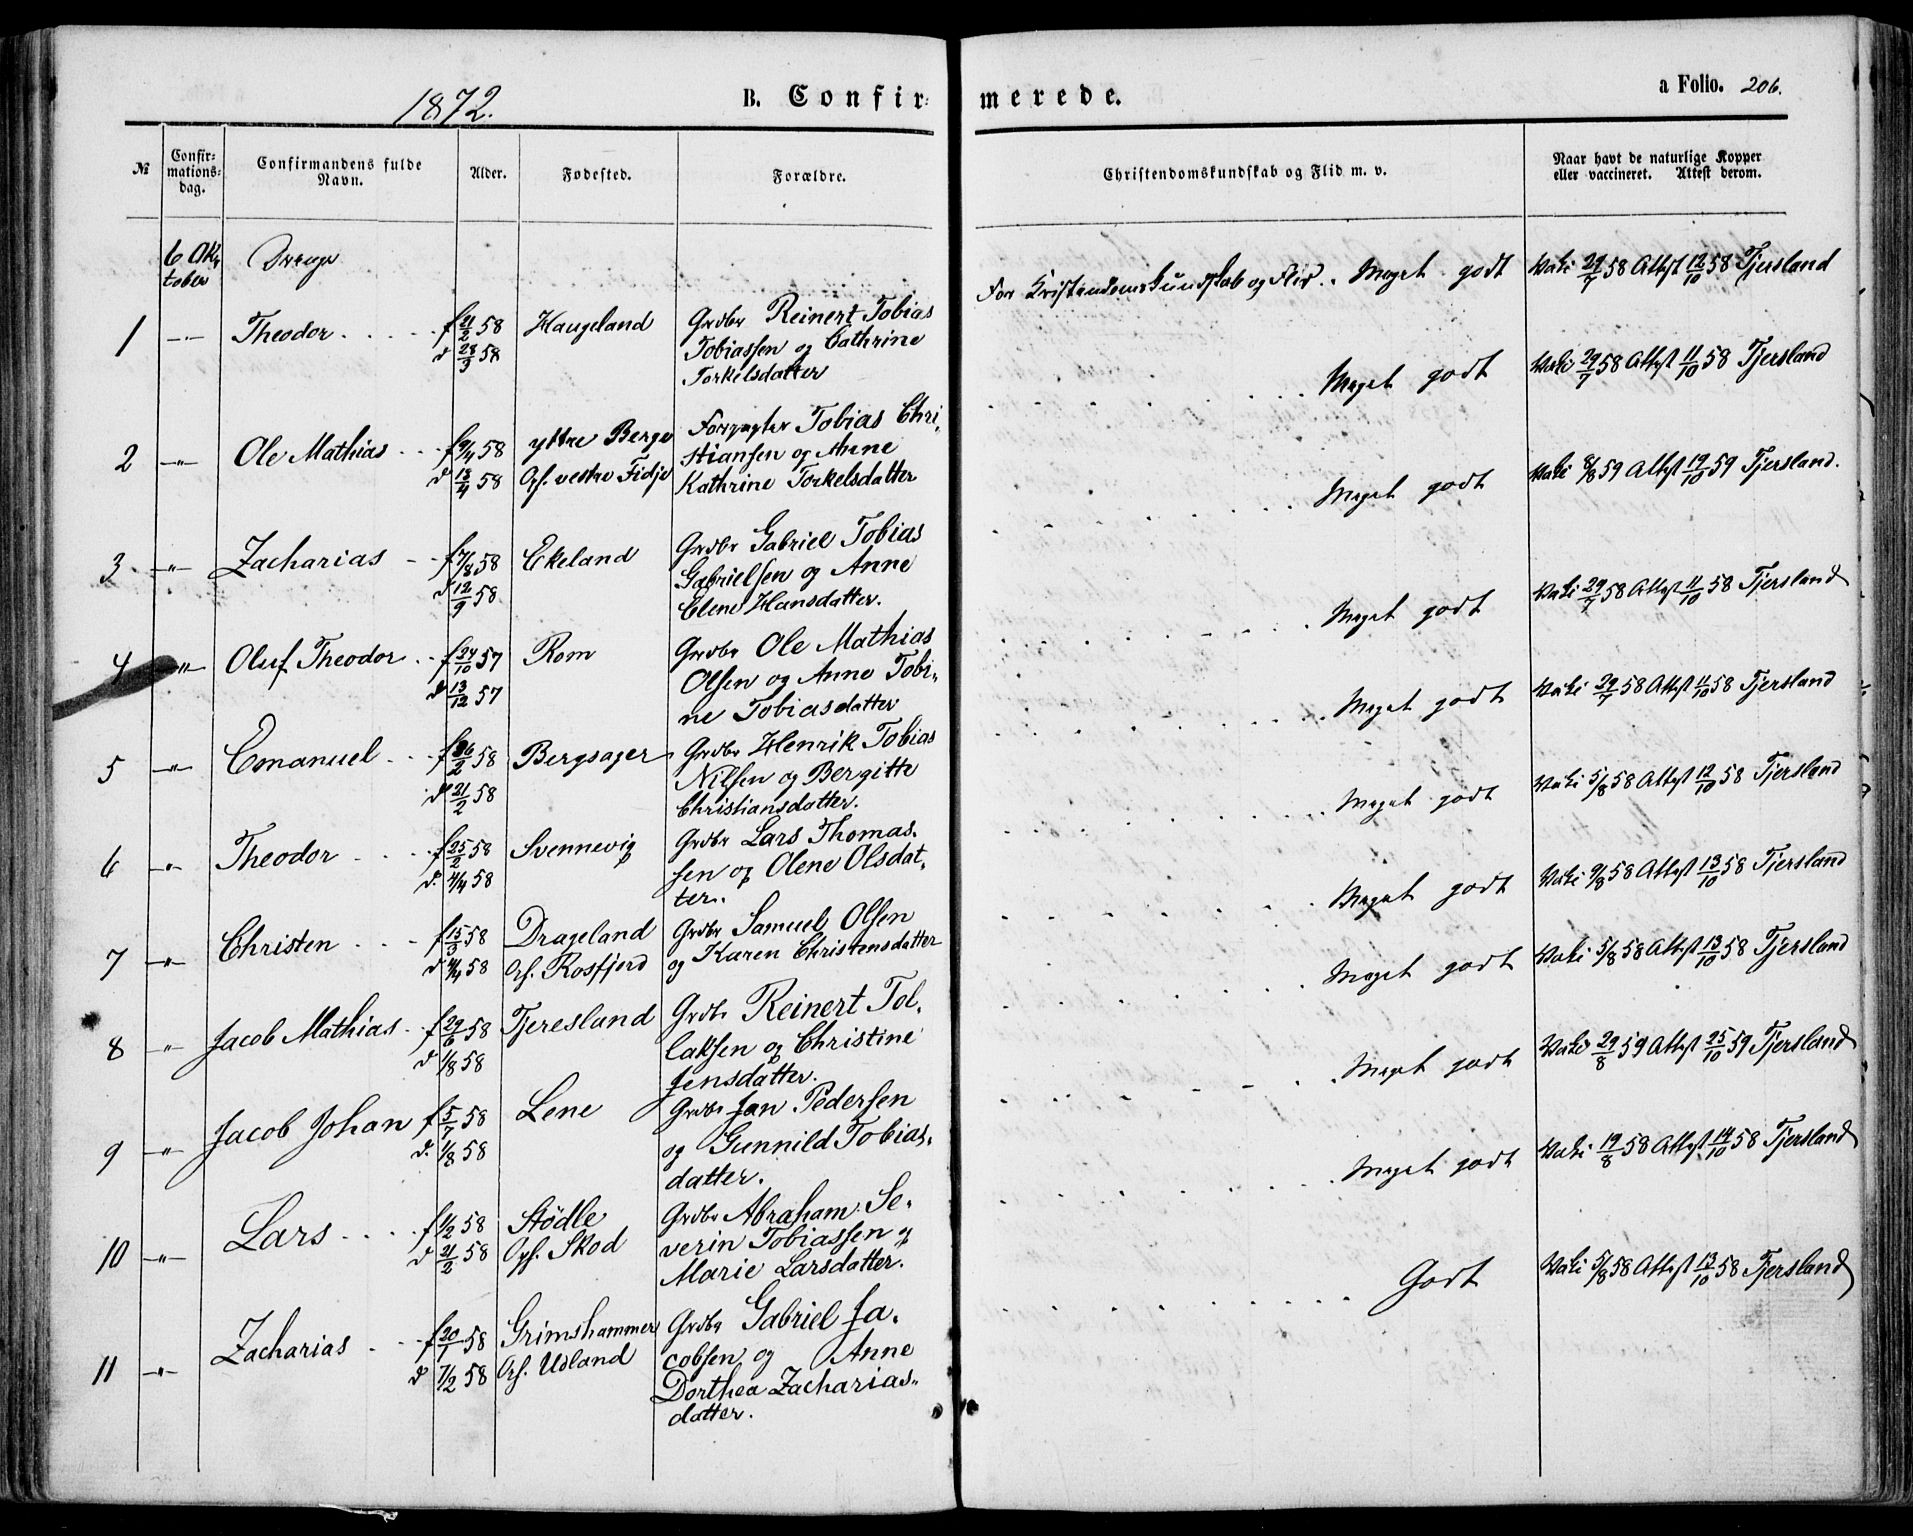 1872.
B. Confir-
merede.
a Folio. 206.
№
Confir-
mations-
dag.
Confirmandens fulde
Navn.
Alder.
Fødested.
Forældre.
Christendomskundskab og Flid m. v.
Naar havt de naturlige Kopper
eller vaccineret. Attest derom.
6 Ok-
tober
Drenge
1 -"- Theodor . . . . f 21/2 58 Haugeland Grdbr Reinert Tobias
d 28/3 58 Tobiassen og Cathrine
Torkelsdatter
For Kristendomskundskab og Flid . . Meget godt Vaki 29/7 58 Attest 12/10 58 Tjersland
2 -"- Ole Mathias . . f 9/4 58 yttre Berge Forpagter Tobias Chri-
d 13/4 58 Opf. vestre Fidje stiansen og Anne
Kathrine Torkelsdatter
Meget godt Vaki 29/7 58 Attest 11/10 58 Tjersland
3 -"- Zacharias - f 7/8 58 Ekeland Grdbr Gabriel Tobias
d 12/9 58 Gabrielsen og Anne
Elene Hansdatter.
Meget godt Vaki 8/8 59 Attest 19/10 59 Tjersland.
4 -"- Oluf Theodor . . f 24/10 57 Rom Grdbr Ole Mathias
d 13/12 57 Olsen og Anne Tobi-
ne Tobiasdatter
Meget godt Vaki 29/7 58 Attest 11/10 58 Tjersland
5 -"- Emanuel . . f 2 58 Bergsager Grdbr Henrik Tobias
d 21/2 58 Nilsen og Bergitte
Christiansdatter.
Meget godt Vaki 29/7 58 Attest 11/10 58 Tjersland
6 -"- Theodor . . . . f 25/2 58 Svennevig Grdbr Lars Thomas-
d. 4/4 58 sen og Olene Olsdat-
ter.
Meget godt Vaki 5/8 58 Attest 12/10 58 Tjersland
7 -"- Christen . . . f 15/3 58 Drageland Grdbr Samuel Olsen
d 4/4 58 Opf. Rosfjord og Karen Christensdatter
Meget godt Vaki 9/8 58 Attest 13/10 58 Tjersland
8 -"- Jacob Mathias . f 29/6 58 Tjeresland Grdbr Reinert Tol-
d 1/8 58 laksen og Christine
Jensdatter.
Meget godt Vaki 5/8 58 Attest 13/10 58 Tjersland
9 -"- Jacob Johan f 5/7 58 Lene Grdbr Jan Pedersen
d. 1/8 58 og Gunnild Tobias-
datter.
Meget godt Vaki 29/8 59 Attest 25/10 59 Tjersland
10 -"- Lars . . . . f 1/2 58 Stödle Grdbr Abraham Se-
d 21/2 58 Opf. Skod verin Tobiassen og
Marie Larsdatter.
Meget godt Vaki 19/8 58 Attest 14/10 58 Tjersland
11 -"- Zacharias . . f 20/1 58 Grimshammer Grdbr Gabriel Ja-
d 7/2 58 Opf. Udland cobsen og Anne
Dorthea Zacharias-
datter.
Godt Vaki 5/8 58 Attest 13/10 58 Tjersland